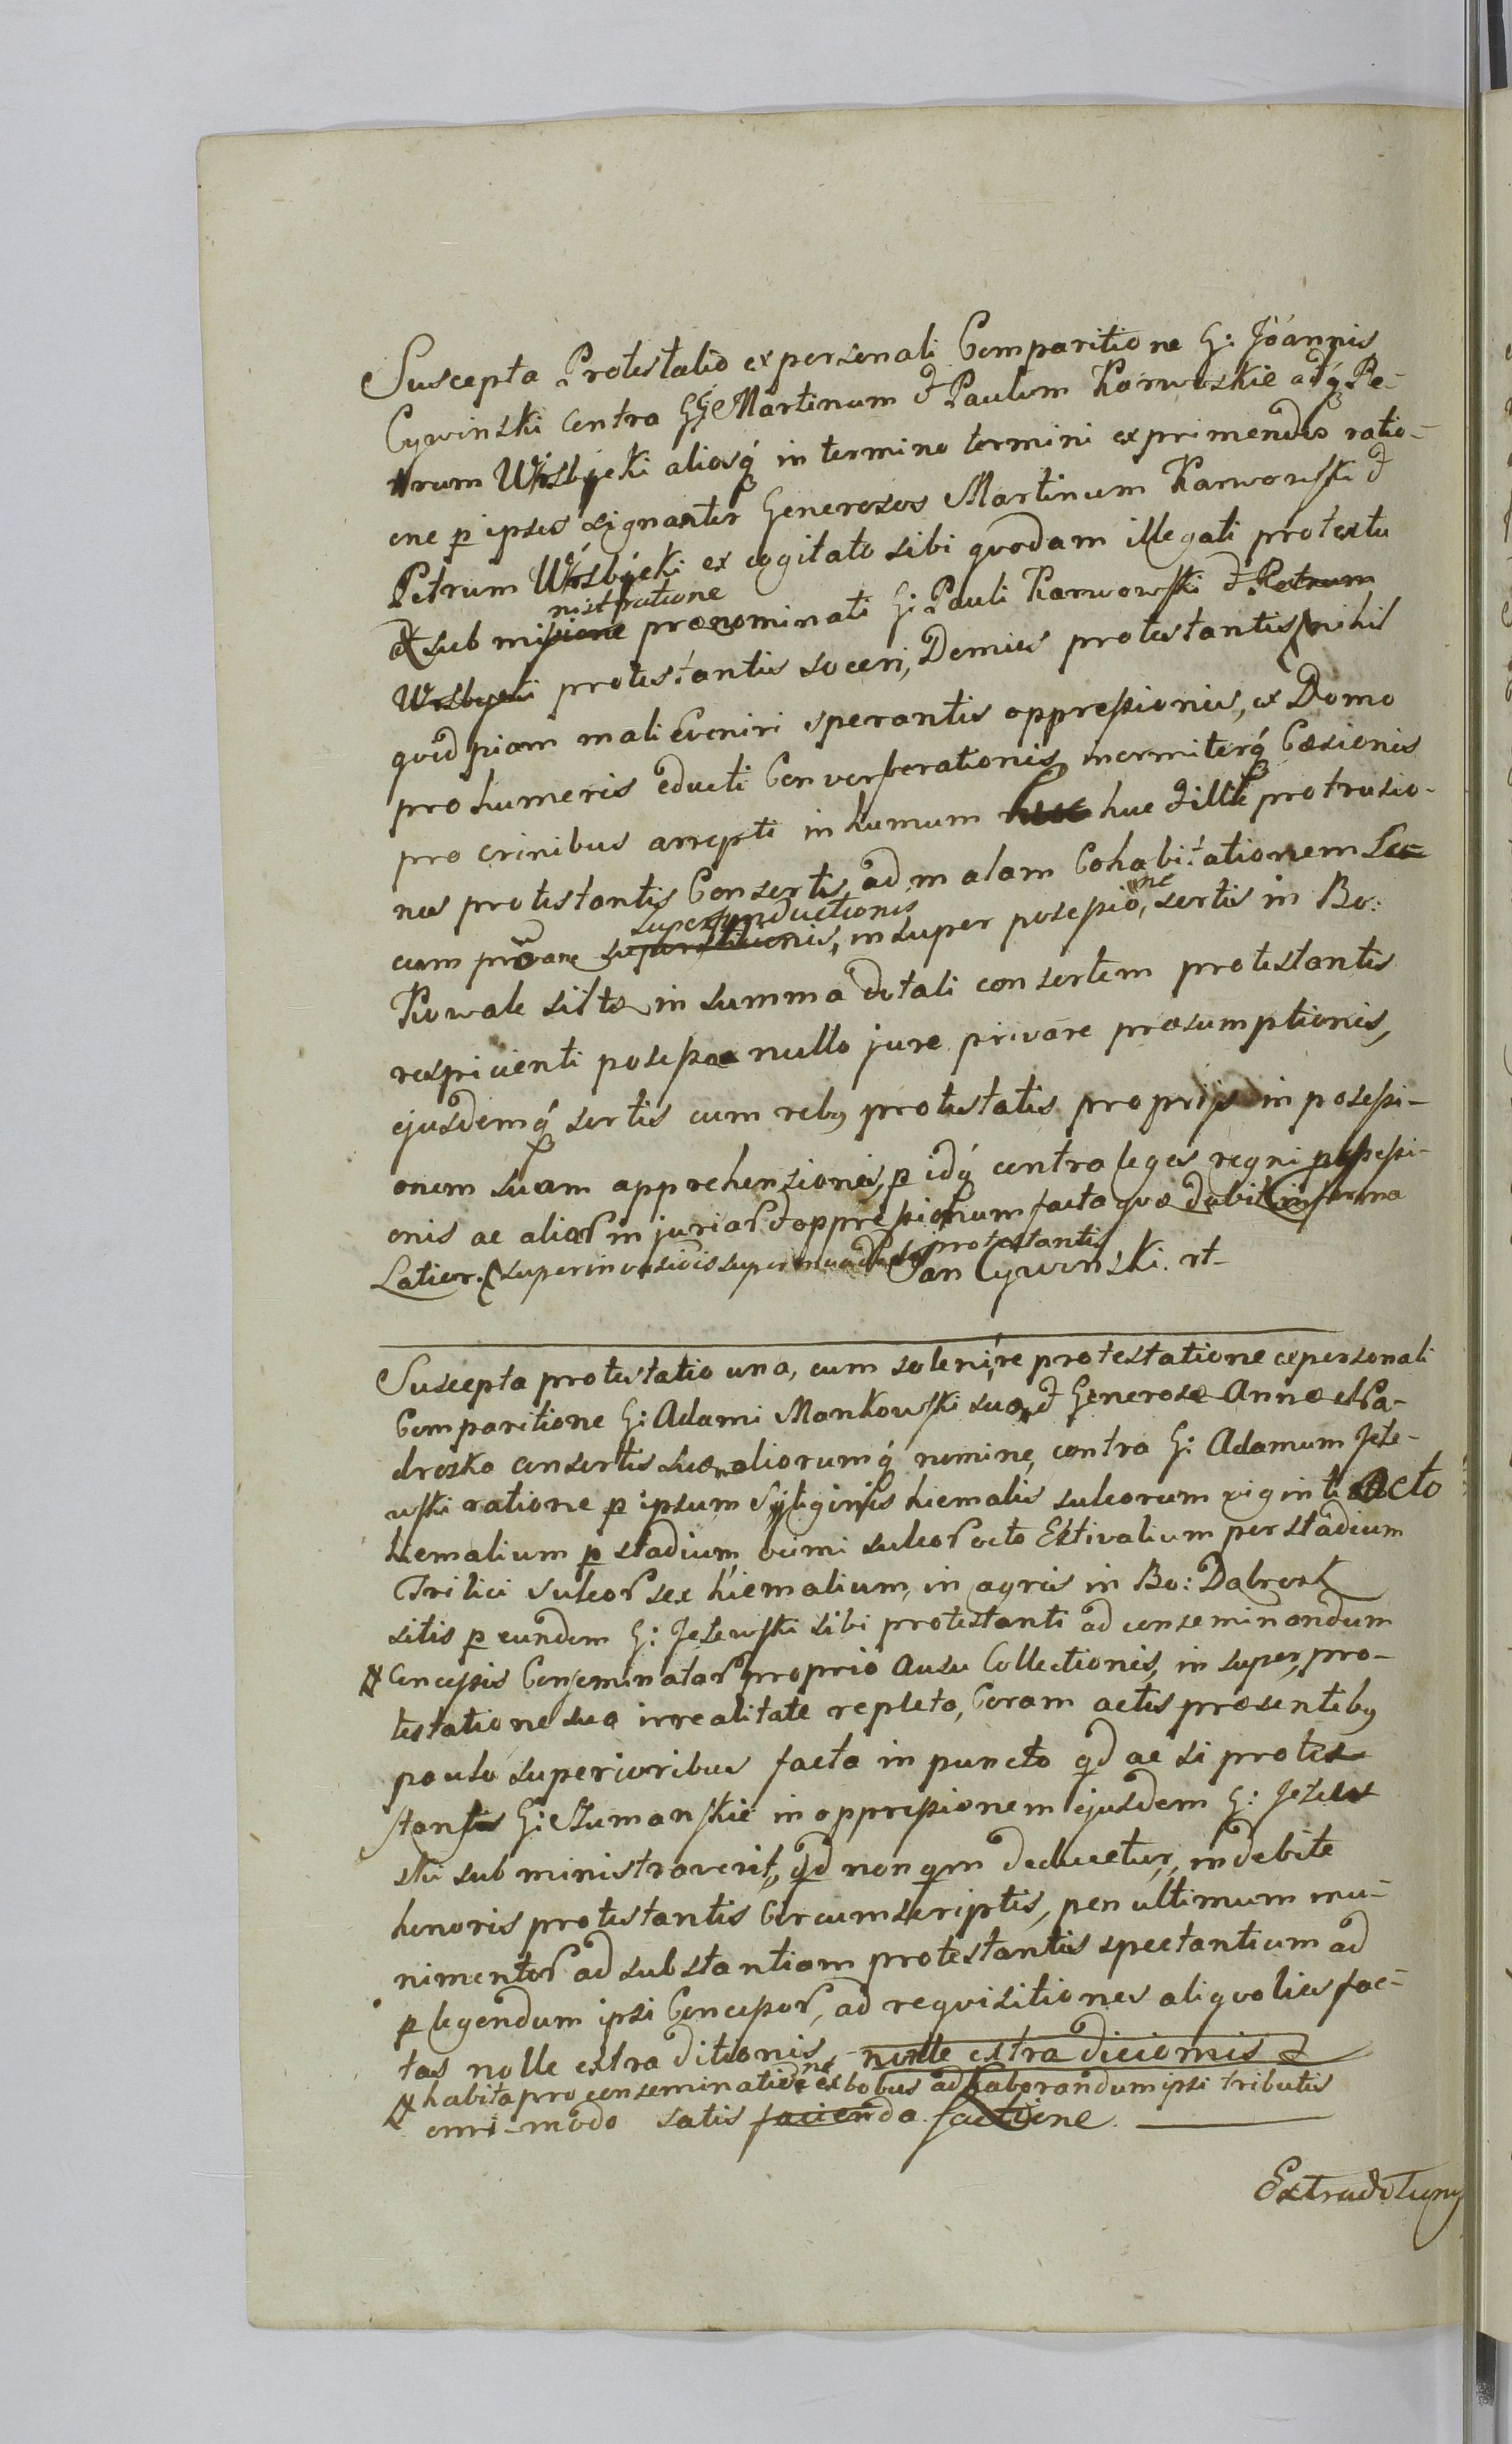 Suscepta Protestatio ex personali Comparitione G: Joannis
Cywinski contra GG Martinum & Paulum Karwoskie adq Pe-
trum Wyszbycki aliosq in termino termini exprimendos ratio-
one p ipsos signanter Generosos Martinum Karwowski &
Petrum Wyszbycki ex cogitato sibi quodam illegali protextu
nistratione
& sub missione prænominati G: Pauli Karwowski & Petrum
Wyszbycki protestantis soceri, Domus protestantis nihil
quidpiam mali eveniri sperantis oppressionis, ex Domo
pro humeris educti Converberationis, inermiterq Cæsionis
pro crinibus arrepti in humum huc & illuc protrusio-
nis protestantis Consortis, ad malam Cohabitationem Se-
superinductionis
cum insuper possessione, sortis in Bo:
Kowale sitæ in summa dotali consortem protestantis
respicienti possessæ nullo jure privare præsumptionis,
ejusdemq sortis cum rebg protestatis proprijs in possessi-
onem suam apprehensionis, p idq contra leges regni possessi-
onis ac alior injuriar & oppressionum facta quæ dabit in forma
protestantis
Latior. Jan Cywinski. rt-
Suscepta protestatio una, cum soleni, re protestatione ex personali
Comparitione G: Adami Mankowski suo & Generosæ Annæ
drozka consortis suæ aliorumq nomine, contra G: Adamum Jeże-
wski ratione p ipsum Syliginis hiemalis sulcorum viginti Octo
hiemalium p stadium, ocimi sulcor octo Estivalium per stadium
Tritici Sulcor sex hiemalium, in agris in Bo: Dabrosk
sitis p eundem G: Jeżewski sibi protestanti ad conseminandum
Concessis Conseminator proprio Ausu Collectionis, in super, pro-
testatione sua irrealitate repleta, Coram actis præsentibg
paulo superioribus facta in puncto qd ac si protes
stantis G: Szumanskie in oppressionem ejusdem G: Jeżew
ski sub ministraverit, qd non qm deducetur, indebite
honoris protestantis Circumscriptis, pen ultimum mu-
nimentor ad substantiam protestantis spectantium ad
p legendum ipsi Concessor, ad requisitiones aliquoties fac-
tas nolle extra ditionis, nolle extra diciomis &
habita pro conseminatione ex bobus ad laborandum ipsi tributis
omi-modo satis facienda factione.
Extradotiony